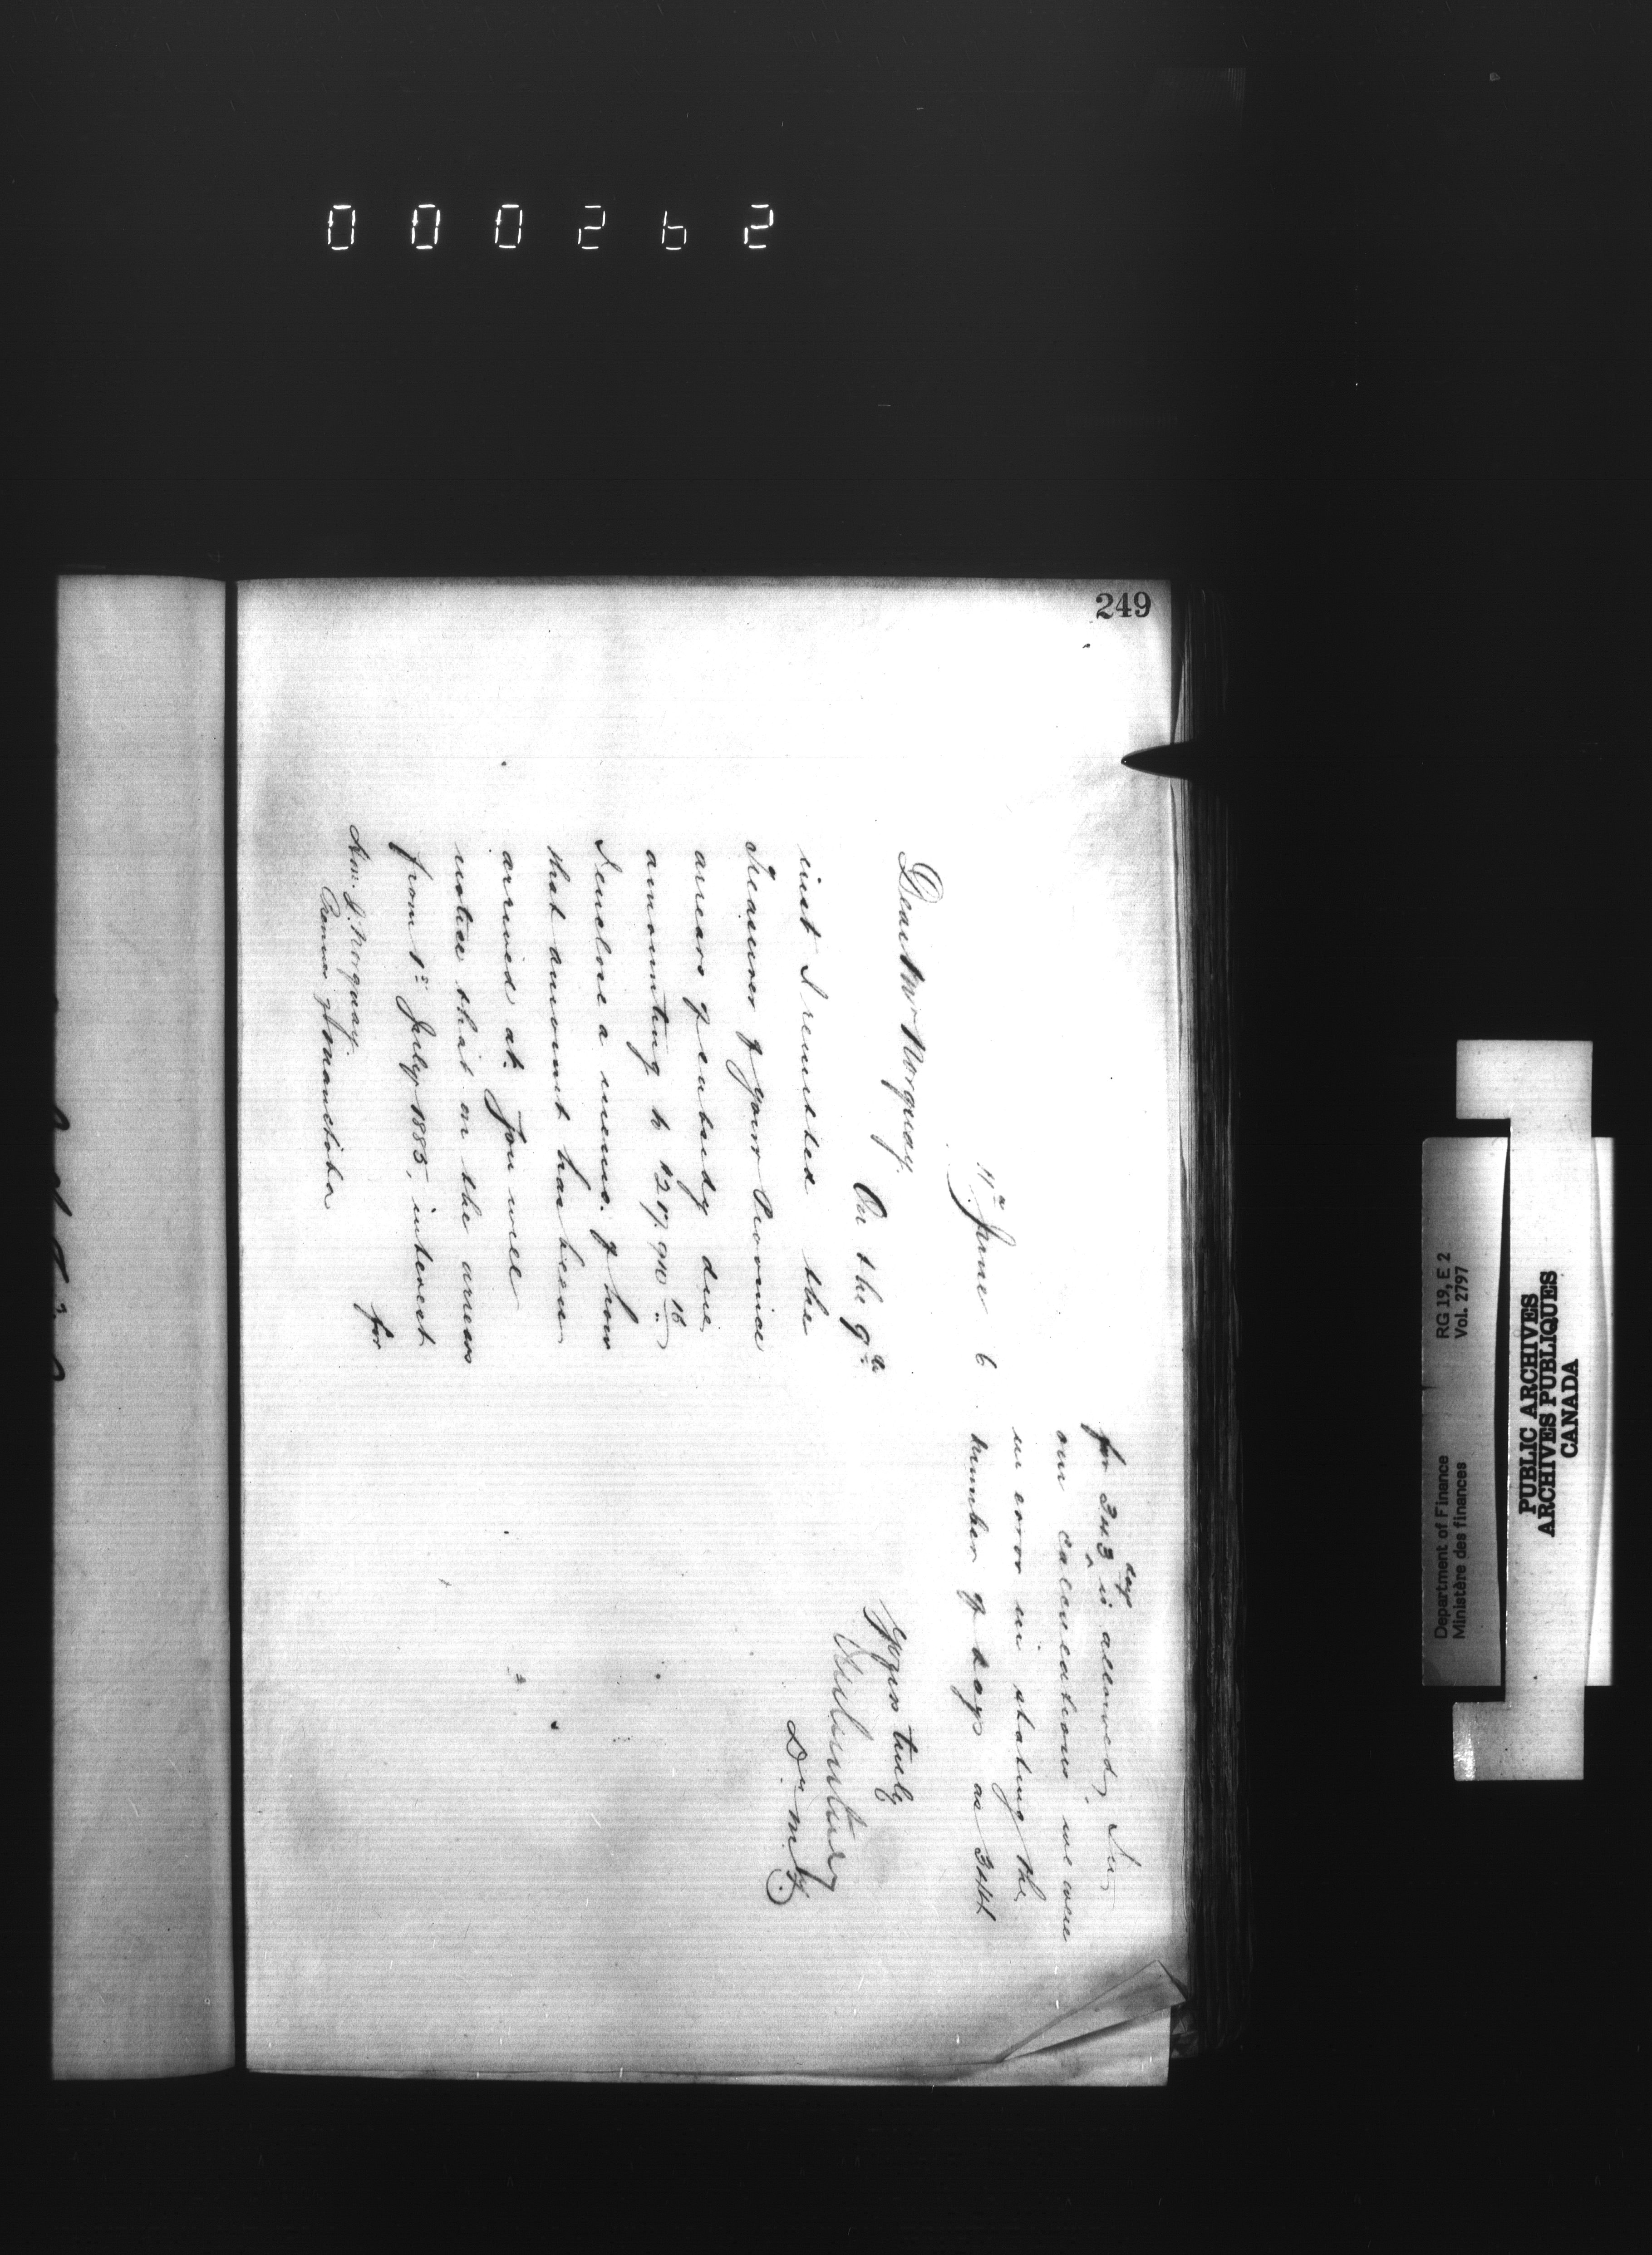 000262
249
11th June 6
Dear Mr Norquay,
On the 9th
inst I remitted the
Treasurer of your Province
arrears of subsidy due
amounting to
I enclose a memo. of how
that amount has been
arrived at. You will
notice that on the arrears
from 1st July 1885, interest
for
Hon. J. Norquay.
Premier of Manitoba
for 343 days is allowed. In
our calculations we were
in error in stating the
number of days as 344
Yours truly
D. M. F.
Department of Finance
Ministère des finances
RG 19, E 2
Vol. 2797
PUBLIC ARCHIVES
ARCHIVES PUBLIQUES
CANADA